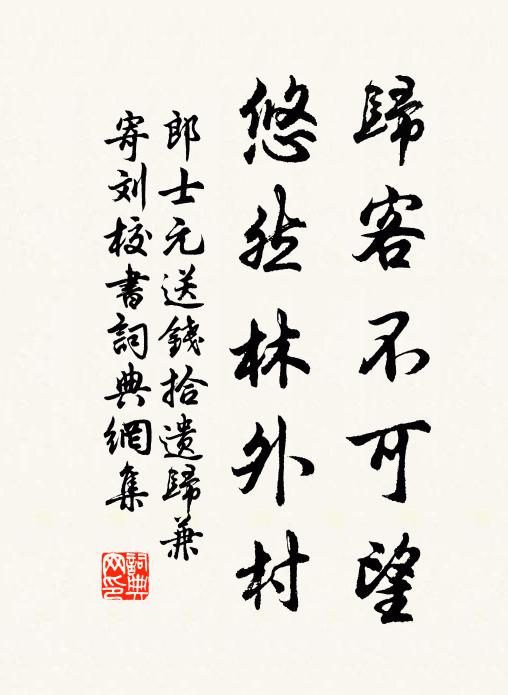 歸客不可望
悠然林外村
郎士元送錢拾遺歸兼
寄刘校書詞典網集
詞典網印